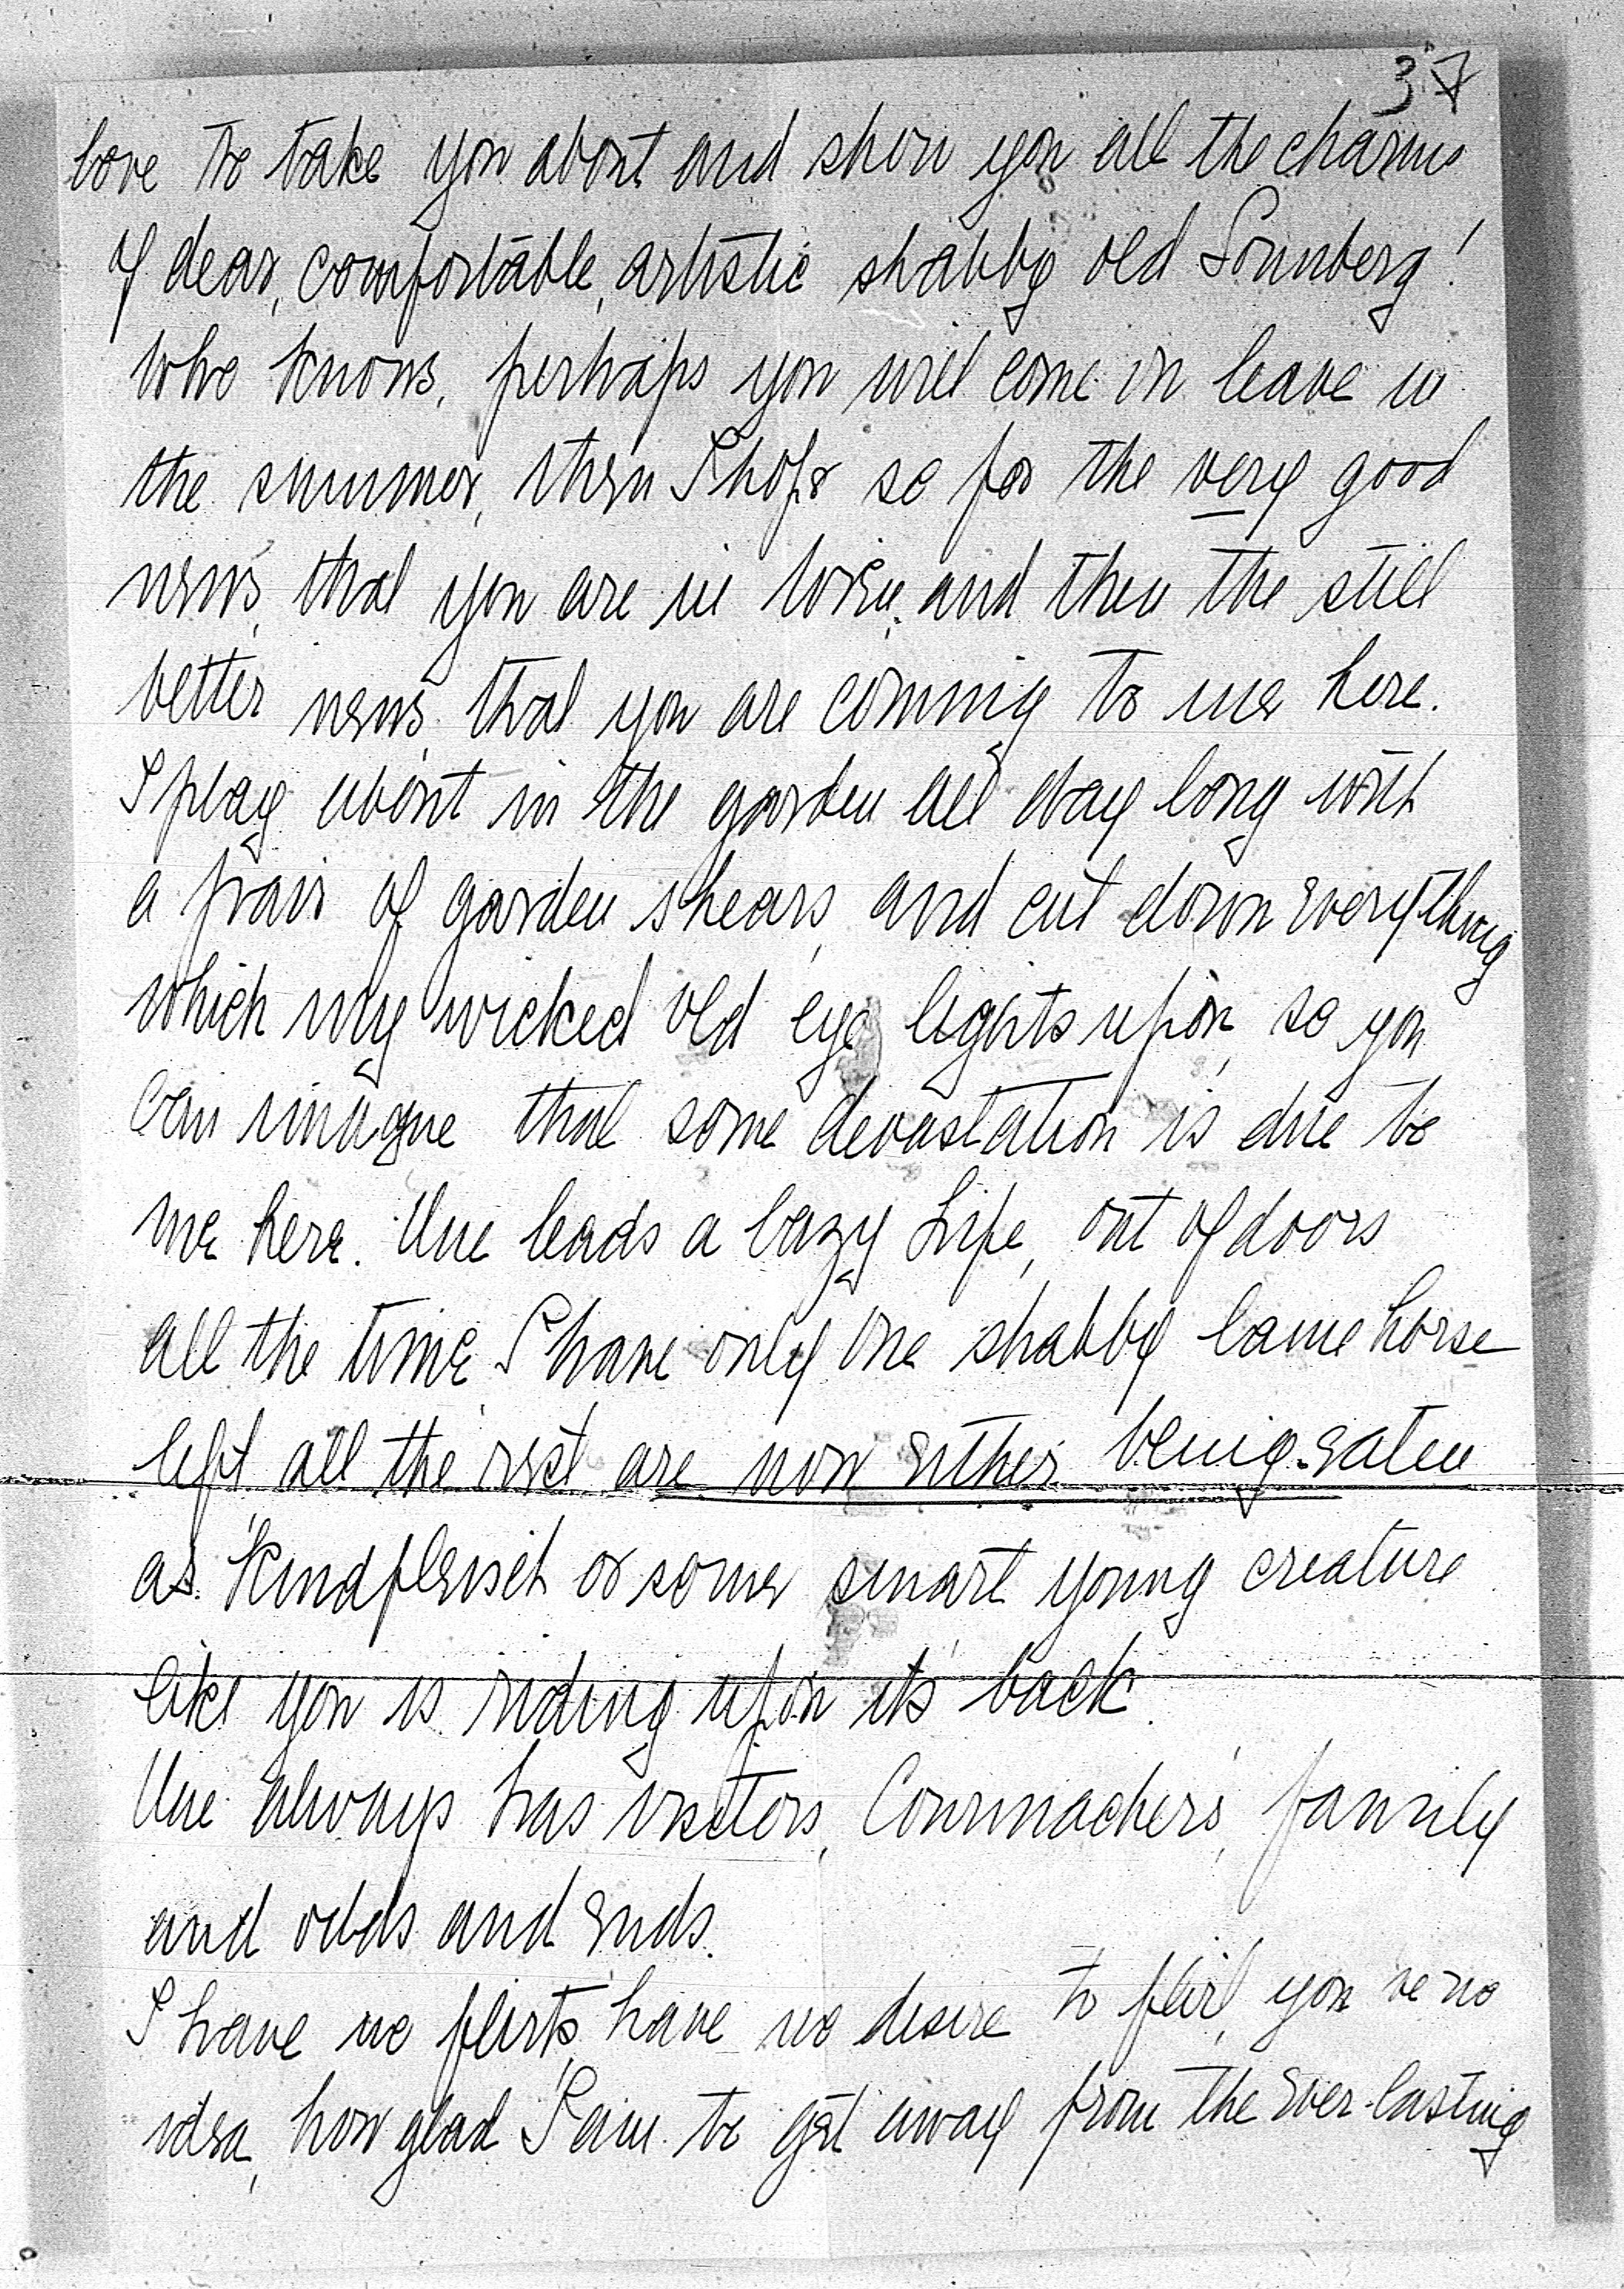 37
love to take you about and show you all the charms
of dear, comfortable, artistic shabby old Sonnberg!
Who knows, perhaps you will come on leave in
the summer, then I hope so for the very good
news, that you are in Wien, and then the still
better news, that you are coming to me here.
I play about in the garden all day long with
a pair of garden shears, and cut down everything
which my wicked old eye lights upon, so you
can imagine that some devastation is due to
me here. One leads a lazy Life, out of doors
all the time, I have only one shabby lame horse
left all the rest are now either being eaten
as Rindfleisch or some smart young creature
like you is riding upon its' back.
One always has visitors, family
and odds and ends.
I have no flirts, have no desire to flirt, you 've no
idea, how glad I am to get away from the ever-lasting